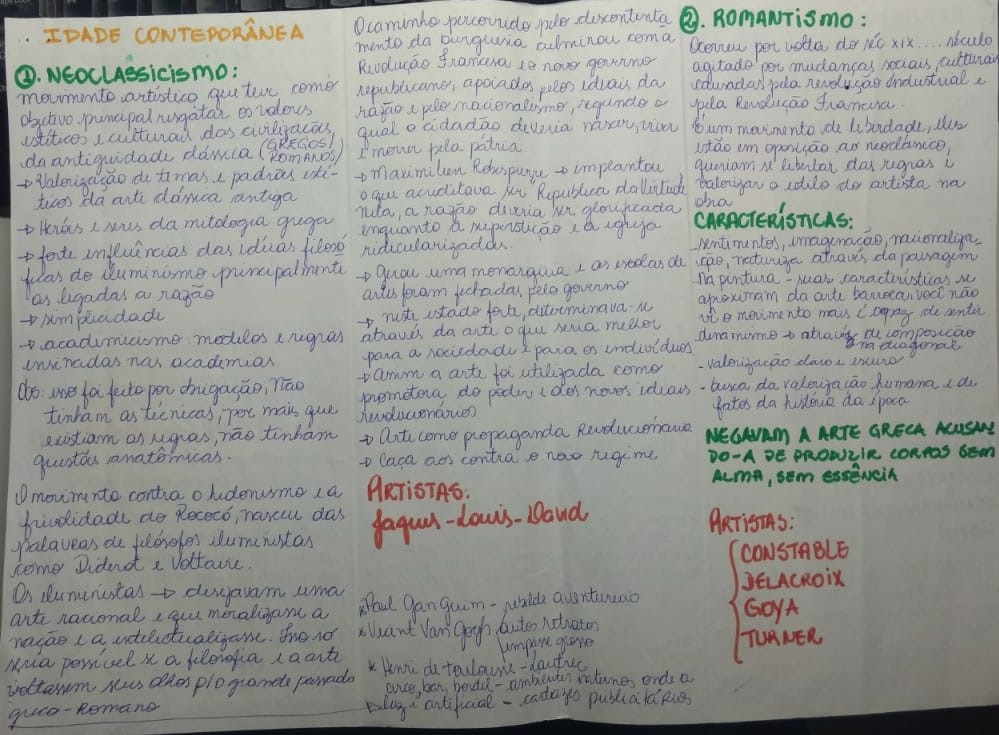 IDADE CONTEPORÂNEA
①. NEOCLASSICISMO:
movimento artístico que tem como
objetivo principal resgatar os valores
estéticos e culturais das civilizações
da antiguidade clássica (GREGOS/
ROMANOS)
→ Valorização de temas e padrões esté-
ticos da arte clássica antiga
→ Heróis e seres da mitologia grega
→ forte influências das idéias filosó
ficas do iluminismo, principalmente
as ligadas a razão
→ simplicidade
→ academicismo: modelos e regras
ensinadas nas academias.
Obs: isso foi feito por obrigação, não
tinham as técnicas, por mais que
existiam as regras, não tinham
questões anatômicas.
O movimento contra o hedonismo e a
frivolidade do Rococó, nasceu das
palavras de filósofos iluministas
como Diderot e Voltaire.
Os iluministas → desejavam uma
arte racional e que moralizasse a
nação e a intelectualizasse. Isso só
seria possível se a filosofia e a arte
voltassem seus olhos p/ o grande passado
greco-Romano
O caminho percorrido pelo descontenta
mento da burguesia culminou com a
Revolução Francesa e o novo governo
republicano, apoiados pelos ideais da
razão e pelo nacionalismo, segundo o
qual o cidadão deveria nascer, viver
e morrer pela pátria.
→ Maximilien Robespierre → implantou
o que acreditava ser República da Virtude
nela, a razão deveria ser glorificada
enquanto a superstição e a igreja
ridicularizadas.
→ Gerou uma monarquia e as escolas de
artes foram fechadas pelo governo
→ neste estado forte, determinava-se
através da arte o que seria melhor
para a sociedade e para os indivíduos
→ assim a arte foi utilizada como
promotora do poder e dos novos ideais
revolucionários
→ Arte como propaganda Revolucionária
→ Caça aos contra o novo regime
ARTISTAS:
Jaques-Louis-David
* Paul Ganguim - rebelde aventureiro
* Vicent Van Gogh, auto retratos
empasse grosso
* Henri de Toulouse-Lautrec
circo, bar, bordel - ambientes noturnos onde a
luz é artificial - cartazes publicitários
②. ROMANTISMO:
Ocorreu por volta do séc XIX.... século
agitado por mudanças sociais, culturais
causadas pela revolução industrial e
pela Revolução Francesa.
É um movimento de liberdade, eles
estão em oposição ao neoclássico,
queriam se libertar das regras e
valorizar o estilo do artista na
obra
CARACTERÍSTICAS:
sentimentos, imaginação, nacionaliza-
ção, natureza através da paisagem
Na pintura - suas características se
aproximam da arte barroca, você não
vê o movimento mais é capaz de sentir.
dinamismo → através de composição
na diagonal
- valorização claro e escuro
- busca da valorização humana e de
fatos da história da época
NEGAVAM A ARTE GREGA ACUSAN
DO-A DE PRODUZIR CORPOS SEM
ALMA, SEM ESSÊNCIA
ARTISTAS:
CONSTABLE
DELACROIX
GOYA
TURNER